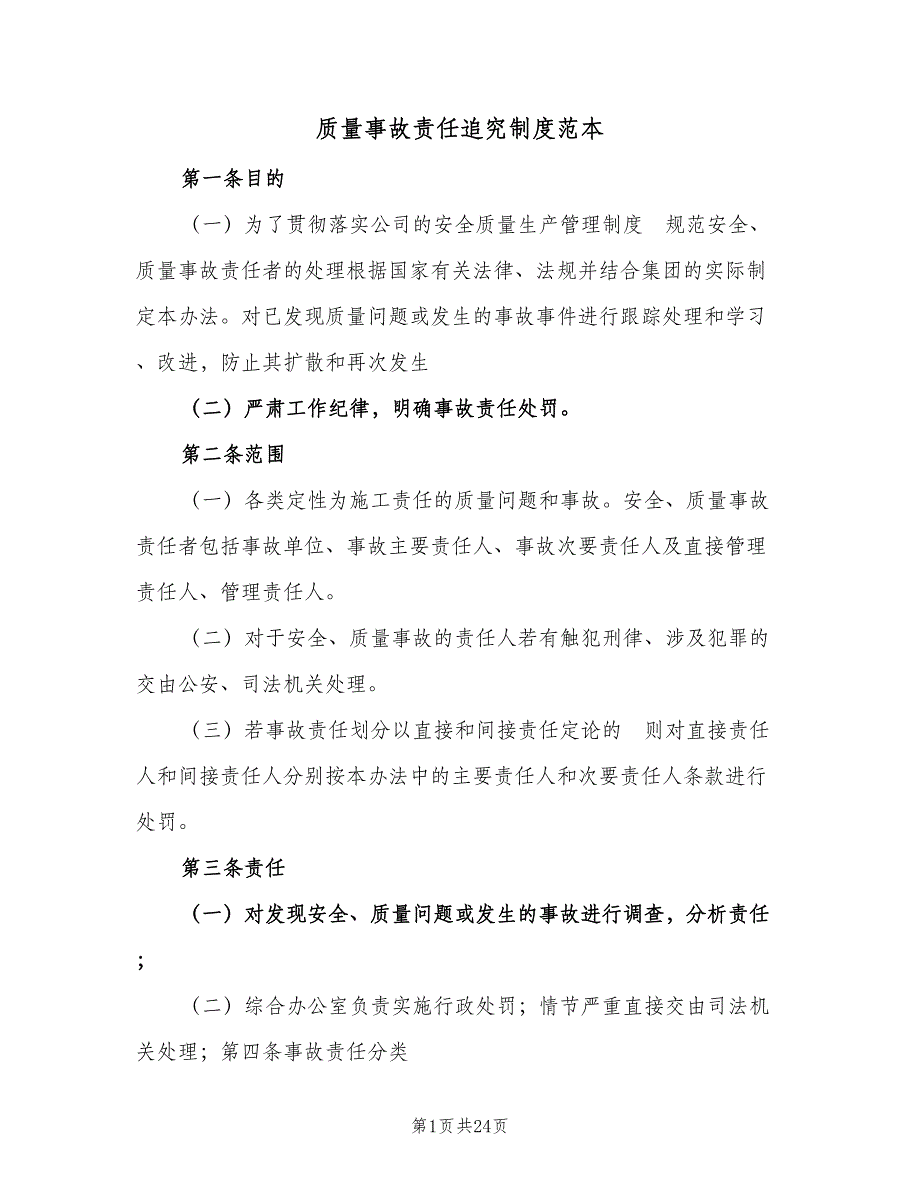 质量事故责任追究制度范本
第一条目的
（一）为了贯彻落实公司的安全质量生产管理制度　规范安全、
质量事故责任者的处理根据国家有关法律、法规并结合集团的实际制
定本办法。对已发现质量问题或发生的事故事件进行跟踪处理和学习
、改进，防止其扩散和再次发生
（二）严肃工作纪律，明确事故责任处罚。
第二条范围
（一）各类定性为施工责任的质量问题和事故。安全、质量事故
责任者包括事故单位、事故主要责任人、事故次要责任人及直接管理
责任人、管理责任人。
（二）对于安全、质量事故的责任人若有触犯刑律、涉及犯罪的
交由公安、司法机关处理。
（三）若事故责任划分以直接和间接责任定论的　则对直接责任
人和间接责任人分别按本办法中的主要责任人和次要责任人条款进行
处罚。
第三条责任
（一）对发现安全、质量问题或发生的事故进行调查，分析责任
；
（二）综合办公室负责实施行政处罚；情节严重直接交由司法机
关处理；第四条事故责任分类
第1页共24页